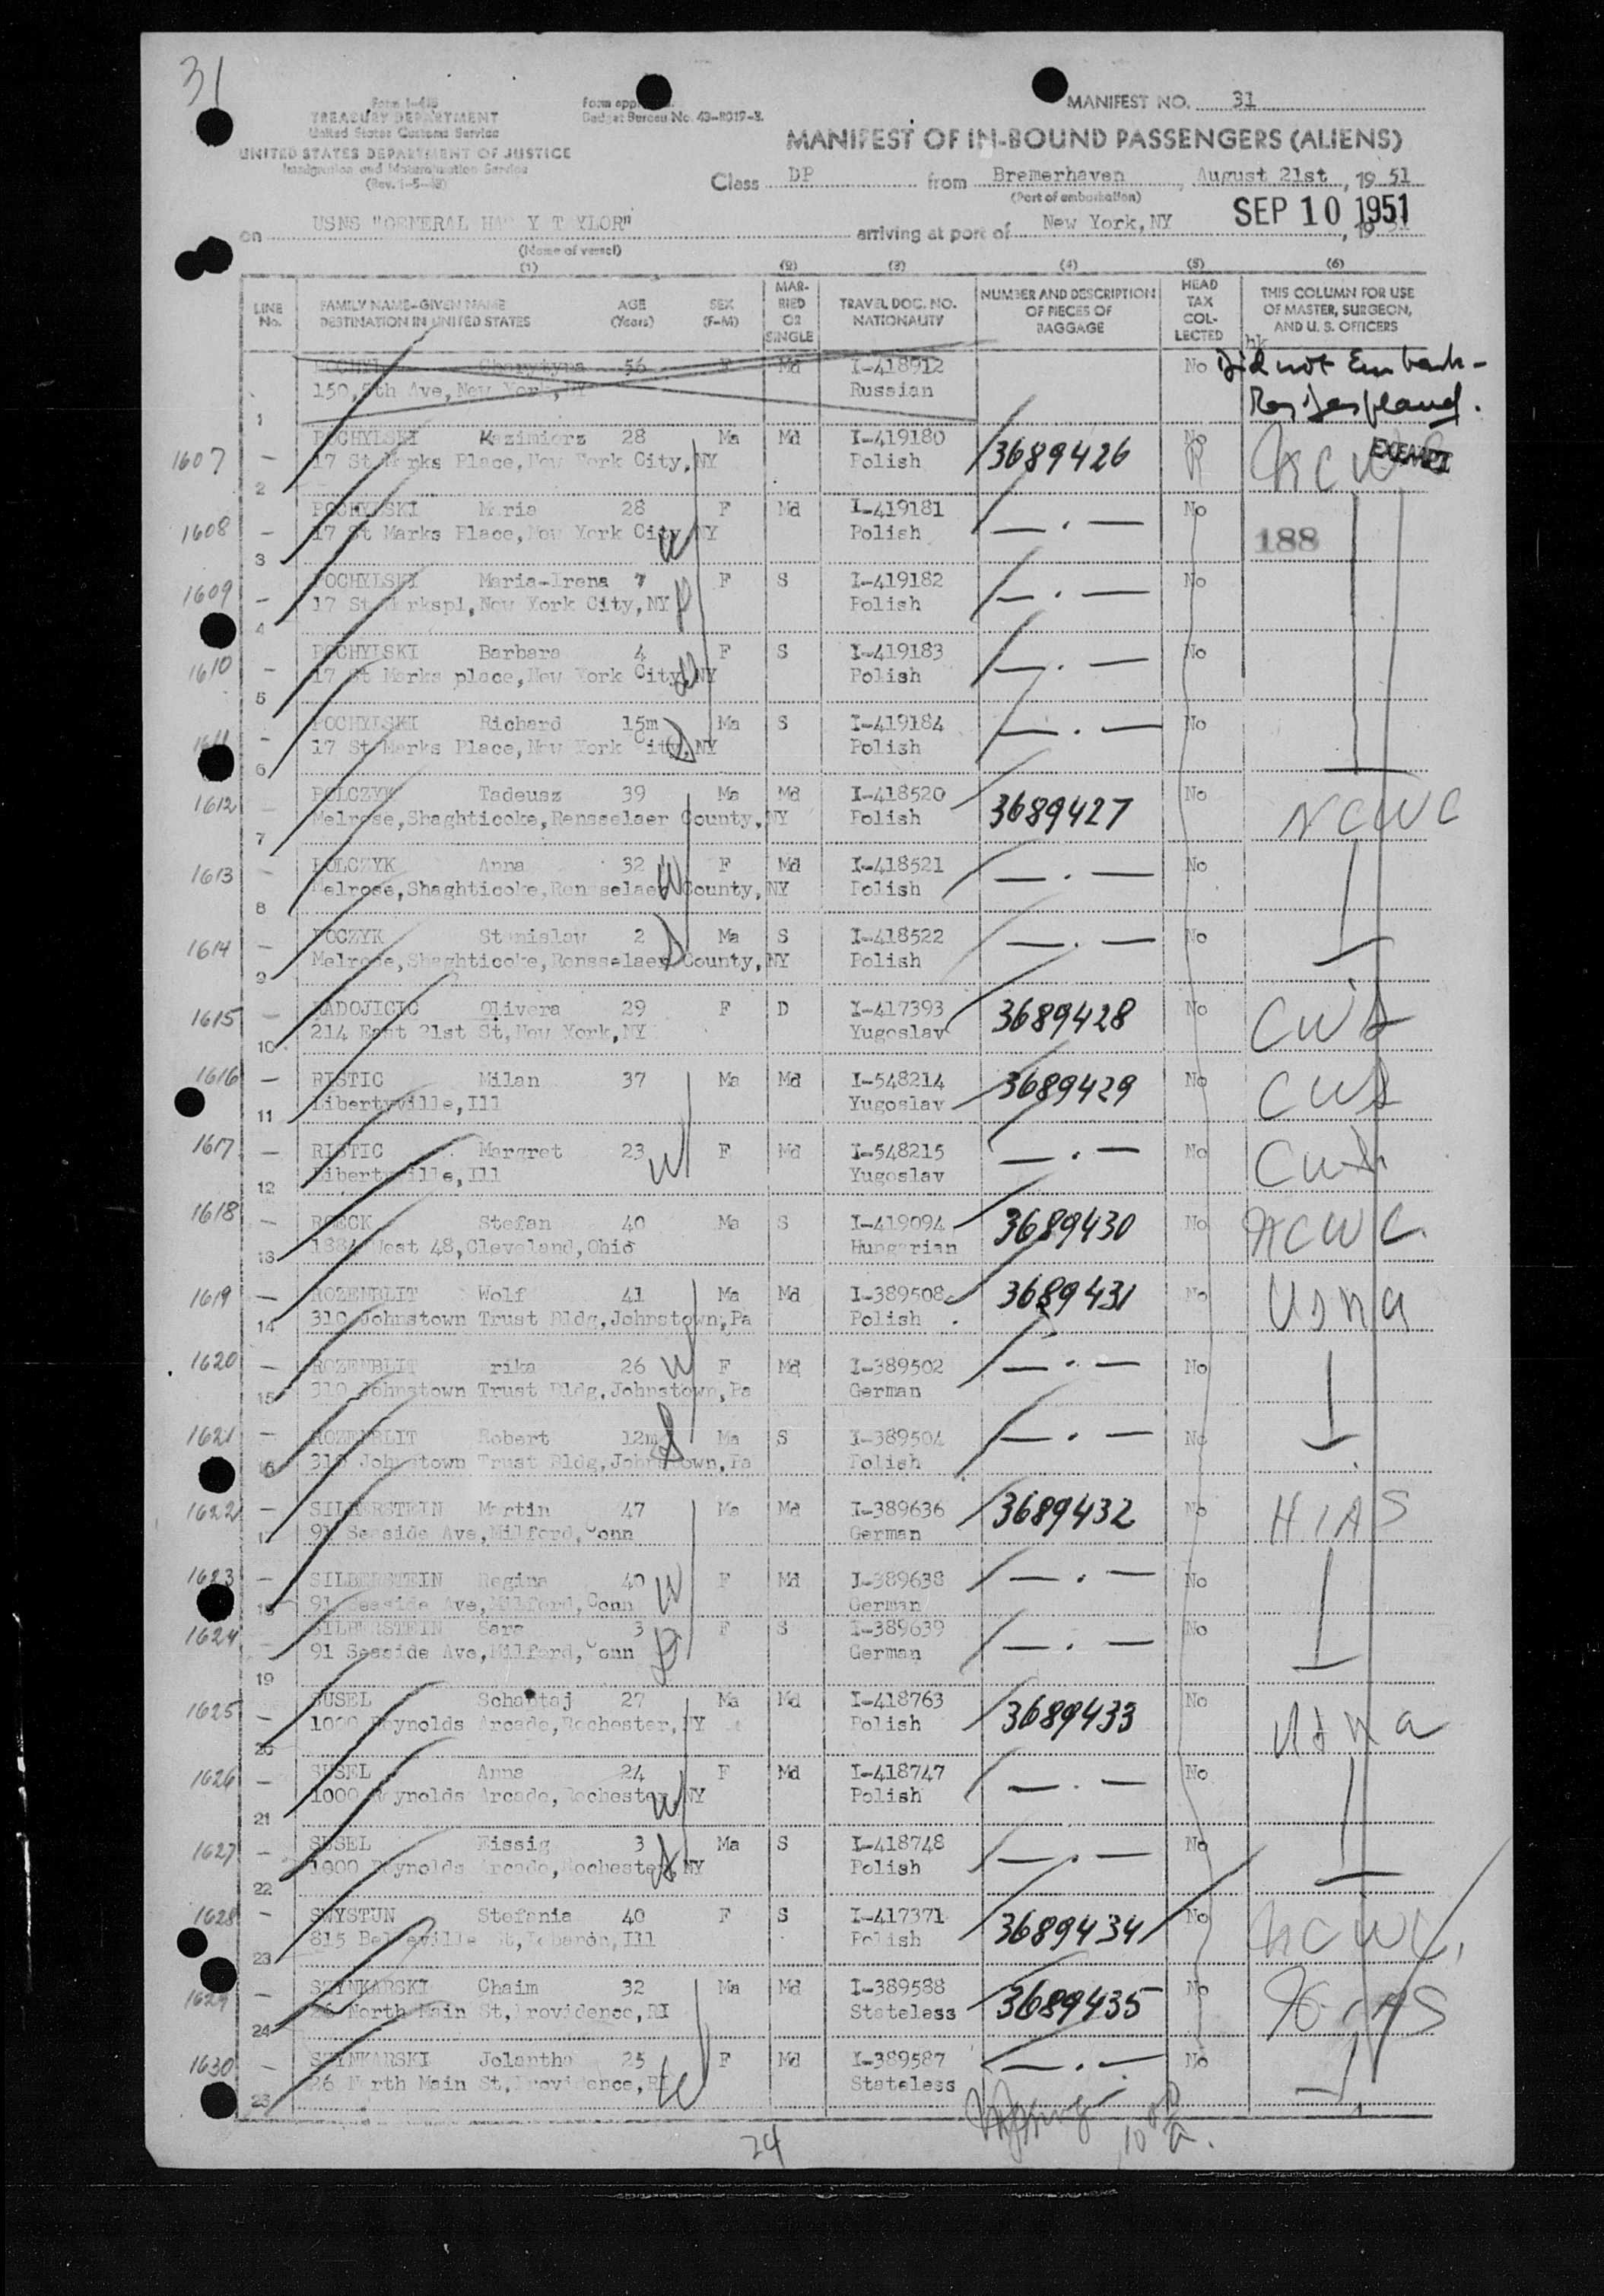 31
Form I-418
TREASURY DEPARTMENT
United States Customs Service
UNITED STATES DEPARTMENT OF JUSTICE
Immigration and Naturalization Service
(Rev. 1-5-48)
Form app
Budget Bureau No. 43-R019-2.
MANIFEST NO. 31
MANIFEST OF IN-BOUND PASSENGERS (ALIENS)
Class DP from Bremerhaven, August 21st, 1951
(Port of embarkation)
on USNS "GENERAL HA Y T YLOR" arriving at port of New York, NY SEP 10 1951, 19 51
(Name of vessel)
(1) (2) (3) (4) (5) (6)
LINE No. FAMILY NAME-GIVEN NAME DESTINATION IN UNITED STATES AGE (Years) SEX (F-M) MARRIED OR SINGLE TRAVEL DOC. NO. NATIONALITY NUMBER AND DESCRIPTION OF PIECES OF BAGGAGE HEAD TAX COLLECTED THIS COLUMN FOR USE OF MASTER, SURGEON, AND U. S. OFFICERS
56 F Md I-418912 No Did not Embark-
150, 5th Ave, New York, NY Russian
1
1607 — POCHYLSKI Kazimierz 28 Ma Md I-419180 3689426 No NCWC EXEMPT
2 17 St Marks Place, New York City, NY Polish
1608 — POCHYLSKI Maria 28 F Md I-419181 — . — No
3 17 St Marks Place, New York City, NY Polish 188
1609 — POCHYLSKI Maria-Irena 7 F S I-419182 — . — No
4 17 St Markspl, New York City, NY Polish
1610 — POCHYLSKI Barbara 4 F S I-419183 — . — No
5 17 St Marks place, New York City, NY Polish
1611 — POCHYLSKI Richard 15m Ma S I-419184 — . — No
6 17 St Marks Place, New York City, NY Polish
1612 — POLCZYK Tadeusz 39 Ma Md I-418520 3689427 No NCWC
7 Melrose, Shaghticoke, Rensselaer County, NY Polish
1613 — POLCZYK Anna 32 W F Md I-418521 — . — No
8 Melrose, Shaghticoke, Rensselaer County, NY Polish
1614 — POCZYK Stanislaw 2 Ma S I-418522 — . — No
9 Melrose, Shaghticoke, Rensselaer County, NY Polish
1615 — RADOJICIC Olivera 29 F D I-417393 3689428 No CWS
10 214 East 21st St, New York, NY Yugoslav
1616 — RISTIC Milan 37 Ma Md I-548214 3689429 No CWS
11 Libertyville, Ill Yugoslav
1617 — RISTIC Margret 23 W F Md I-548215 — . — No CWS
12 Libertyville, Ill Yugoslav
1618 — ROECK Stefan 40 Ma S I-419094 3689430 No NCWC
13 1884 West 48, Cleveland, Ohio Hungarian
1619 — ROZENBLIT Wolf 41 Ma Md I-389508 3689431 No Usna
14 310 Johnstown Trust Bldg, Johnstown, Pa Polish
1620 — ROZENBLIT Erika 26 W F Md I-389502 — . — No
15 310 Johnstown Trust Bldg, Johnstown, Pa German
1621 — ROZENBLIT Robert 12m Ma S I-389504 — . — No
16 310 Johnstown Trust Bldg, Johnstown, Pa Polish
1622 — SILBERSTEIN Martin 47 Ma Md I-389636 3689432 No HIAS
17 91 Seaside Ave, Milford, Conn German
1623 — SILBERSTEIN Regina 40 W F Md I-389638 — . — No
18 91 Seaside Ave, Milford, Conn German
1624 — SILBERSTEIN Sara 3 F S I-389639 — . — No
19 91 Seaside Ave, Milford, Conn German
1625 — SUSEL Schabtaj 27 Ma Md I-418763 3689433 No Usna
20 1000 Reynolds Arcade, Rochester, NY Polish
1626 — SUSEL Anna 24 W F Md I-418747 — . — No
21 1000 Reynolds Arcade, Rochester, NY Polish
1627 — SUSEL Eissig 3 Ma S I-418748 — . — No
22 1000 Reynolds Arcade, Rochester, NY Polish
1628 — SWYSTUN Stefania 40 F S I-417371 3689434 No NCWC
23 815 Belleville St, Lebanon, Ill Polish
1629 — SZYNKARSKI Chaim 32 Ma Md I-389588 3689435 No HIAS
24 26 North Main St, Providence, RI Stateless
1630 — SZYNKARSKI Jolantha 25 W F Md I-389587 — . — No
25 26 North Main St, Providence, RI Stateless
24